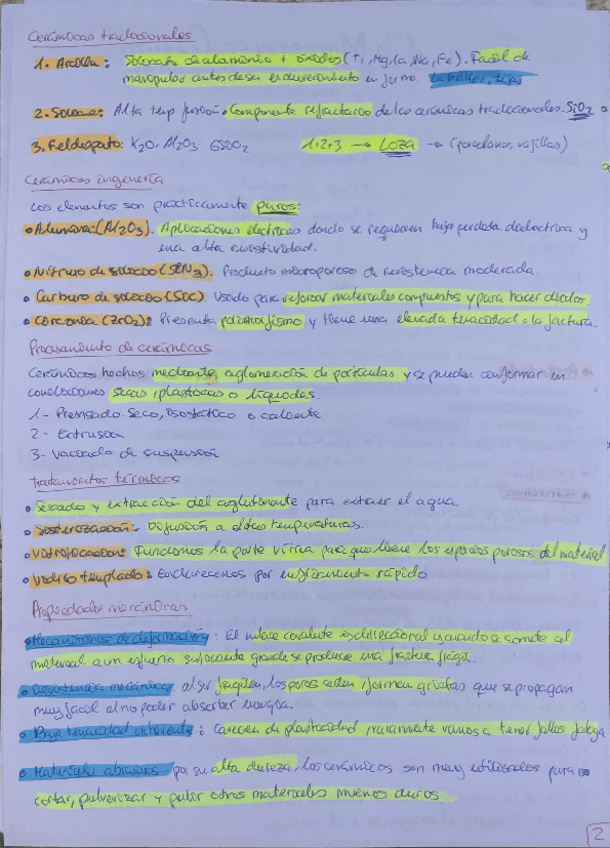 Cerámicas tradicionales
1. Arcilla: Silicato de aluminio + óxidos (Ti, Mg, Ca, Na, Fe). Facil de
manipular antes de su endurecimiento en forma. Ladrillos, tejas
2. Sílice: Alta temp fusión. Componente refractario de las cerámicas tradicionales. SiO2
3. Feldespato: K2O · Al2O3 6SiO2 1+2+3 → Loza → (porcelana, vajillas)
Cerámicas ingeniería
Los elementos son prácticamente puros:
• Alúmina: (Al2O3). Aplicaciones eléctricas donde se requieren baja perdida dieléctrica y
una alta resistividad.
• Nitruro de silicio (Si3N4). Producto microporoso de resistencia moderada.
• Carburo de silicio (SiC). Usado para reforzar materiales compuestos y para hacer
• Circonia (ZrO2): Presenta polimorfismo y tiene una elevada tenacidad a la fractura.
Procesamiento de cerámicas
Cerámicas hechas mediante aglomeración de partículas y se pueden conformar en
condiciones secas, plásticas o líquidas.
1- Prensado. Seco, isostático o caliente
2- Extrusión
3- Vaciado de suspensión
Tratamientos térmicos
• Secado y extracción del aglutinante para extraer el agua.
• Sinterización. Difusión a altas temperaturas.
• Vitrificación: Fundimos la parte vítrea para que llene los espacios porosos del material
• Vidrio templado: Endurecemos por enfriamiento rápido
Propiedades mecánicas
• Mecanismos de deformación: El enlace covalente es direccional y cuando se somete al
material a un esfuerzo suficiente grande se produce una fractura frágil.
• Resistencia mecánica: al ser frágiles, los poros ceden y forman grietas que se propagan
muy facil al no poder absorber energía.
• Baja tenacidad : Carecen de plasticidad, raramente vamos a tener fallos fatiga
• Materiales abrasivos por su alta dureza, los cerámicos son muy utilizados para
cortar, pulverizar y pulir otros materiales menos duros.
2